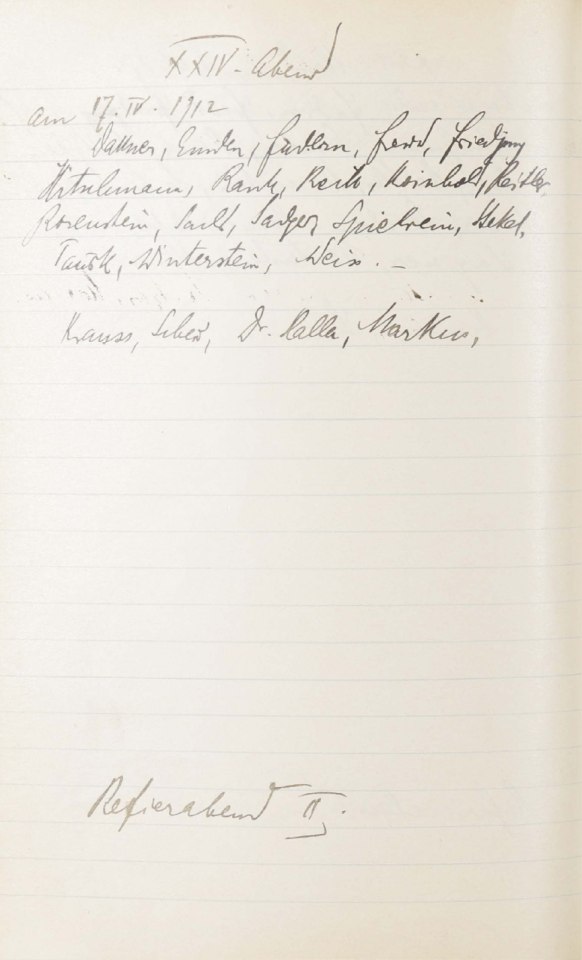 XXIV. Abend
am 17. IV. 1912
Dattner, Emden, Federn, Freud, Friedjung
Hitschmann, Rank, Reik, Reinhold, Reitler
Rosenstein, Sachs, Sadger Spielrein, Stekel,
Tausk, Winterstein, Weiss. –
Krauss, Dr. Halla, Markus,
Referierabend II.